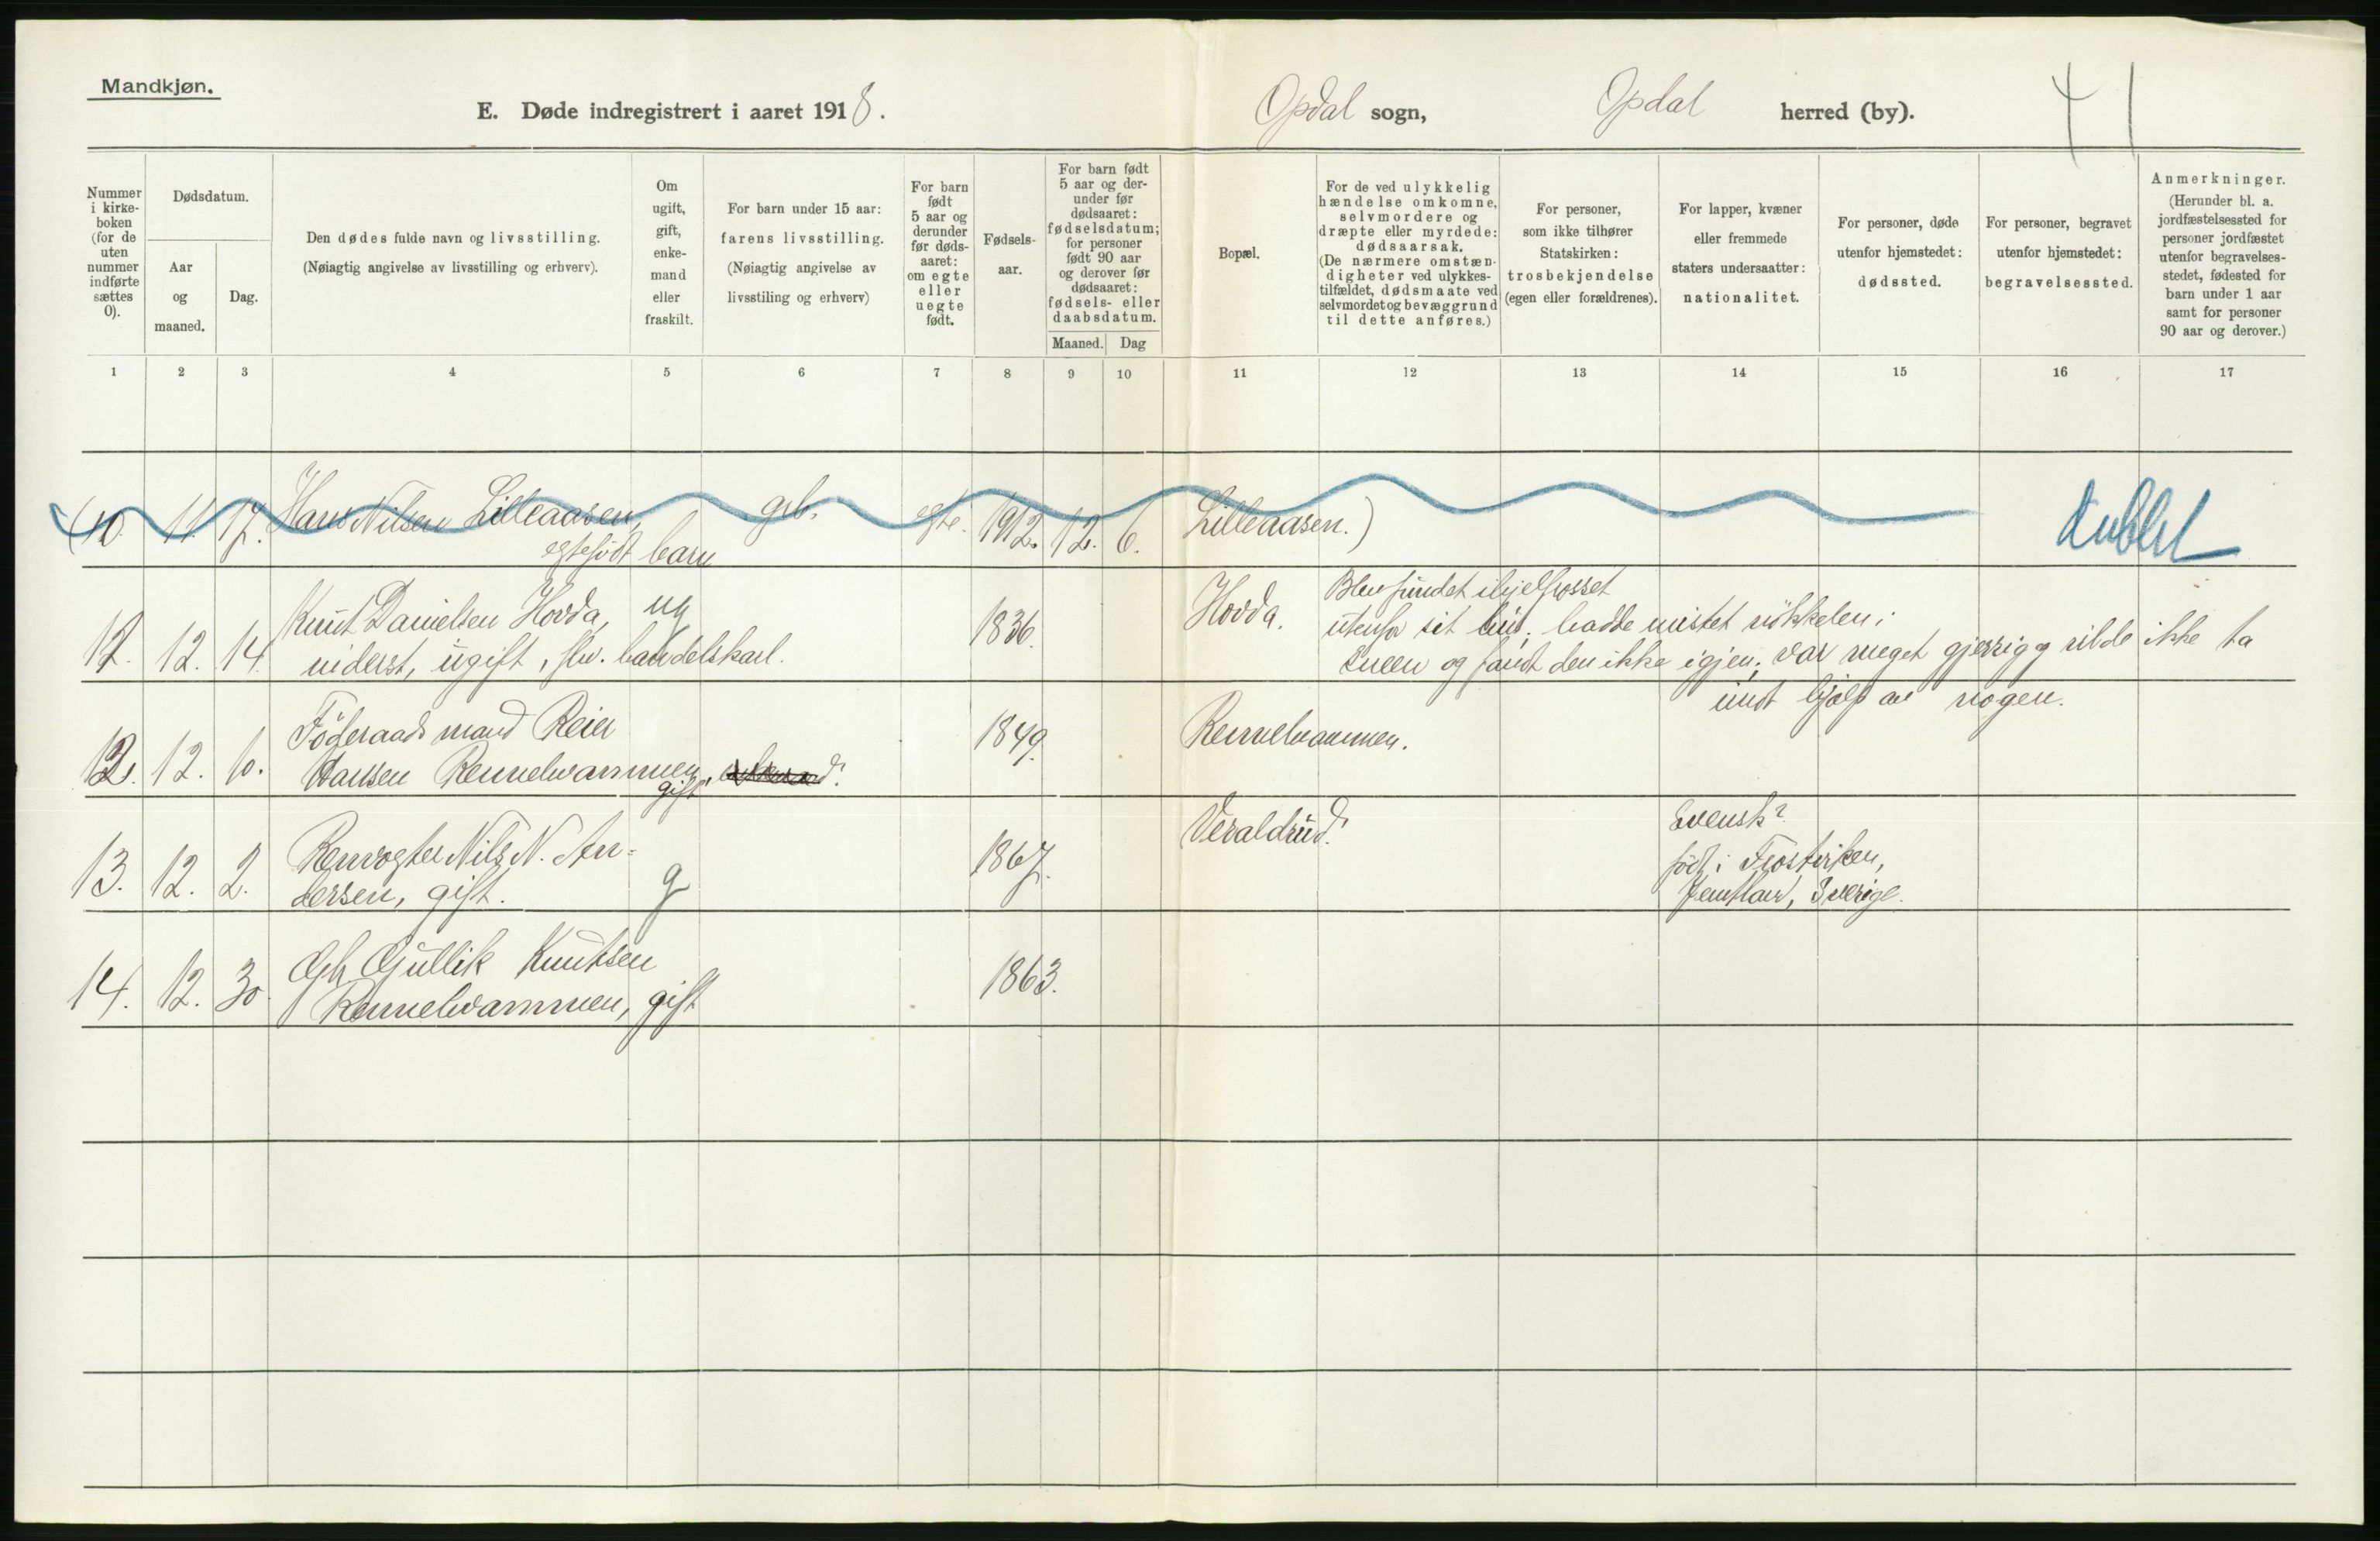 Mandkjøn.
E. Døde indregistrert i aaret 1918.
Opdal sogn, Opdal herred (by).
41
Nummer i kirke-boken (for de uten nummer indførte sættes 0).
Dødsdatum.
Aar og maaned.
Dag.
Den dødes fulde navn og livsstilling.
(Nøiagtig angivelse av livsstilling og erhverv).
Om ugift, gift, enke-mand eller fraskilt.
For barn under 15 aar: farens livsstilling.
(Nøiagtig angivelse av livsstiling og erhverv)
For barn født 5 aar og derunder før døds-aaret: om egte eller uegte født.
Fødsels-aar.
For barn født 5 aar og der-under før dødsaaret: fødselsdatum; for personer født 90 aar og derover før dødsaaret: fødsels- eller daabsdatum.
Maaned. Dag
Bopæl.
For de ved ulykkelig hændelse omkomne, selvmordere og dræpte eller myrdede: dødsaarsak.
(De nærmere omstæn-digheter ved ulykkes-tilfældet, dødsmaate ved selvmordet og bevæggrund til dette anføres.)
For personer, som ikke tilhører Statskirken: trosbekjendelse (egen eller forældrenes).
For lapper, kvæner eller fremmede staters undersaatter: nationalitet.
For personer, døde utenfor hjemstedet: dødssted.
For personer, begravet utenfor hjemstedet: begravelsessted.
Anmerkninger.
(Herunder bl. a. jordfæstelsessted for personer jordfæstet utenfor begravelses-stedet, fødested for barn under 1 aar samt for personer 90 aar og derover.)
1 2 3 4 5 6 7 8 9 10 11 12 13 14 15 16 17
(10. 11. 17. Hans Nilsen Lilleaasen, grb. egte. 1912. 12. 6. Lilleaasen.) Dublet
egtefødt barn
12. 14. Knut Danielsen Hovda, ug 1836. Hovda. Blev fundet ihjelfrosset
inderst, ugift, fhv. handelskarl. utenfor sit hus; hadde mistet nøkkelen i
sneen og fandt den ikke igjen; var meget gjerrig og vilde ikke ta
imot hjælp av nogen.
12. 12. 10. Føderaadsmand Reier 1849. Rennehvammen.
Hansen Rennehvammen, gift
13. 12. 2. Renvogter Nils N. An- 1867. Veraldrud. Svensk?
dersen, gift. g født i Frostviken,
Jemtland, Sverige.
14. 12. 30 Gbr. Gullik Knutsen 1863.
Rennehvammen, gift